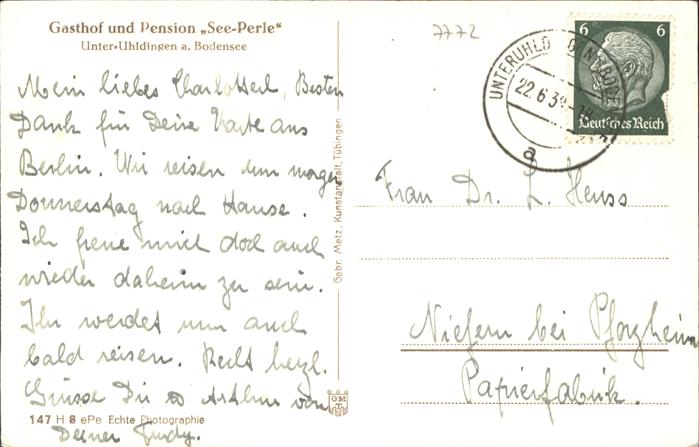 Gasthof und Pension „See-Perle“
Unter-Uhldingen a. Bodensee
7772
Mein liebes Charlotterl, Besten
Dank für Deine Karte aus
Berlin. Wir reisen nun morgen
Donnerstag nach Hause.
Ich freue mich doch auch
wieder daheim zu sein.
Ihr werdet nun auch
bald reisen. Recht herzl.
Grüsse Dir u. Arthur von
Deiner Trudy.
147 H 8 ePe Echte Photographie
Gebr. Metz, Kunstanstalt, Tübingen
GMT
UNTERUHLDINGEN (BODENSEE)
22.6.38
a
6 6
Deutsches Reich
Frau Dr. L. Heuss
Niefern bei Pforzheim
Papierfabrik.